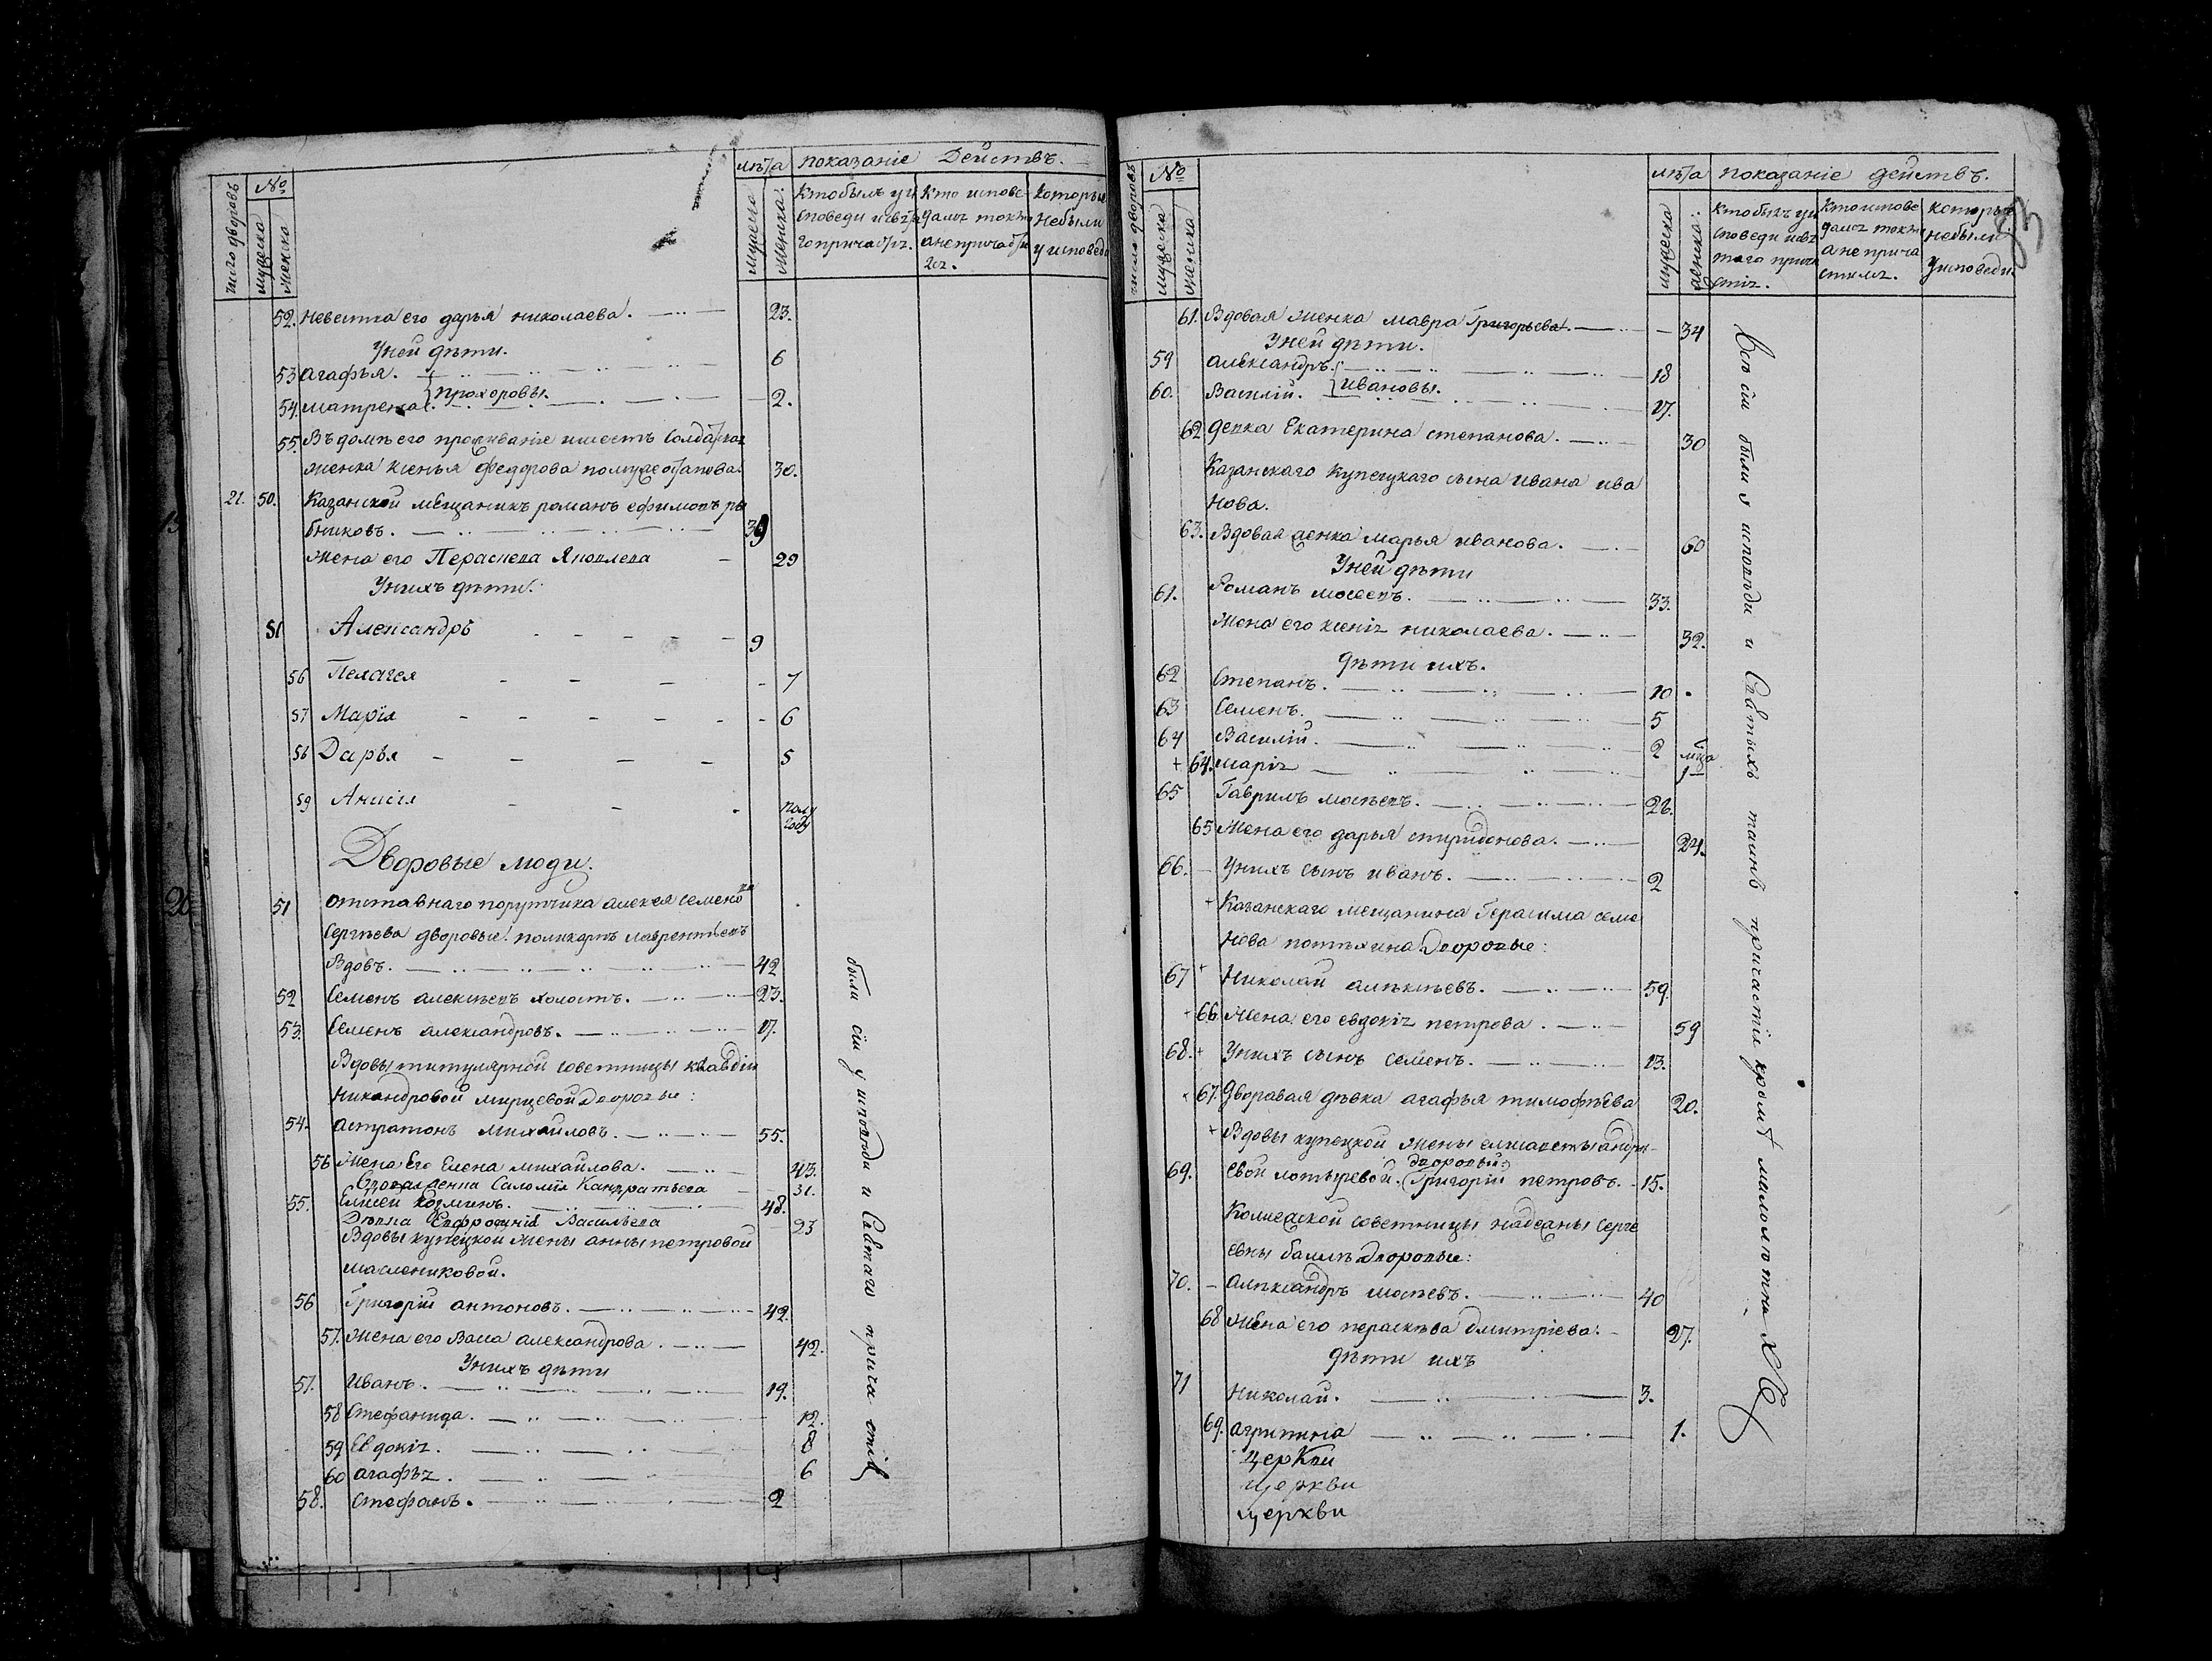 число дворовъ
№
мужеска
женска
лѣта
мужеска
женска.
показаніе действъ.
Кто былъ у и
споведи и свята
го причастія.
Кто испове
дался токмо
а не причасти
лся.
Которые
небыли
у исповеди
52. Невестка его дарья николаева. 23.
У ней дѣти.
53 агафья. 6
Прохоровы.
54. матрена. 2.
55. Въ домѣ его проживаніе имеетъ солдатская
женка ксенья федорова 30.
21. 50. Казанской мещанинъ романъ ефимовъ ры
бниковъ. 39
Жена его Параскева Яковлева 29
У нихъ дѣти:
51 Александръ 9
56 Пелагея 7
57 Марія 6
58 Дарья 5
59 Анисія полу
году
Дворовые люди.
51 отставнаго порутчика алексея семено
Сергѣева дворовые: поликарпъ лаврентьевъ
Вдовъ. 42
52 Семенъ алексѣевъ холостъ. 23.
53. Семенъ александровъ. 17.
Вдовы титулярной советницы клавдіи
никандровой мирцевой дворовые:
54. астратонъ михайловъ. 55.
56 Жена Его Елена михайлова. 43.
Саломія Кандратьева 31.
55. Елисей козминъ. 48.
Девка Евфросинія Васильева 23
Вдовы купецкой жены анны петровой
маслениковой.
56 Григорій антоновъ. 42.
57. Жена его Васа александрова. 42.
У нихъ дѣти
57. Иванъ. 19.
58 Стефанида. 12.
59 Евдокія. 8
60 агафья. 6
58. Стефанъ. 2
были сіи у исповѣди и Святаго прича стія
число дворовъ
№
мужеска
женска
лѣта
мужеска
женска.
показаніе действъ.
Кто былъ у и
споведи и свя
таго прича
стія.
Кто испове
дался токмо
а не прича
стился.
Которые
небыли
у исповеди.
83
61. Вдовая женка мавра Григорьева. 34
У ней дѣти.
59 александръ. 18
Ивановы.
60. Василій. 17.
62 девка Екатерина степанова. 30
Казанскаго купецкаго сына ивана ива
нова.
63. Вдовая женка марья иванова. 60
У ней дѣти
61. Романъ мосеевъ. 33.
Жена его ксенія николаева. 32.
дѣти ихъ.
62 Степанъ. 10
63 Семенъ. 5
64 Василій. 2
+ 64. марія мца
1
65 Гаврилъ мосѣевъ. 26.
65 Жена его дарья спиридонова. 24.
66. У нихъ сынъ иванъ. 2
+ Казанскаго мещанина Герасима семе
нова котелкина дворовые:
67 + Николай алѣксѣевъ. 59.
+ 66 Жена его евдокія петрова. 59
68. + У нихъ сынъ семенъ. 13.
+ 67. дворавая дѣвка агафья тимофѣева 20.
+ Вдовы купецкой жены елисаветы андре
дворовый
69. евой лотыревой. Григорій петровъ. 15.
Колежской советницы надежны серге
евны дворовые:
70. александръ мосѣевъ. 40
68 Жена его параскѣва дмитріева. 27.
дѣти ихъ
71 Николай. 3.
69. агрипина 1.
Церкви
церкви
церкви
Всѣ сіи были у исповѣди и Святыхъ таинъ причастія кромѣ малолѣтныхъ